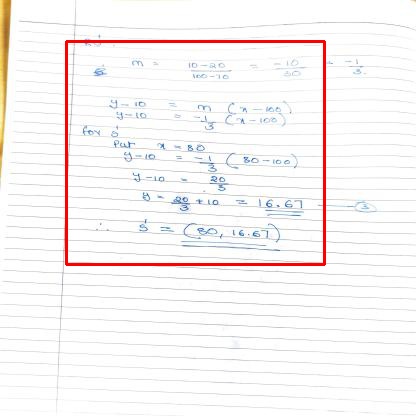 m = 10-20 / 100-70 = -10 / 30 = -1 / 3.
y-10 = m (x-100)
y-10 = -1/3 (x-100)
for ś
Put x = 80
y-10 = -1/3 (80-100)
y-10 = 20/3
y = 20/3 + 10 = 16.67 — 3
∴ ś = (80, 16.67)